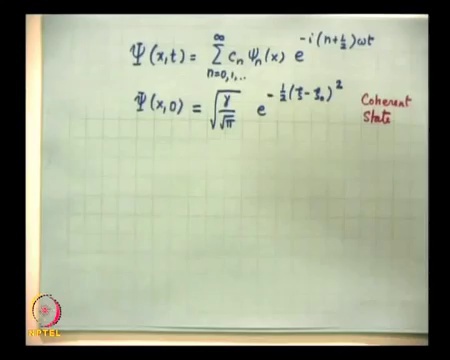 Ψ(x,t) = ∑_{n=0,1,...}^{∞} c_n ψ_n(x) e^{-i(n+½)ωt}
Ψ(x,0) = √(γ/√π) e^{-½(ξ-ξ₀)²}
Coherent
State
NPTEL